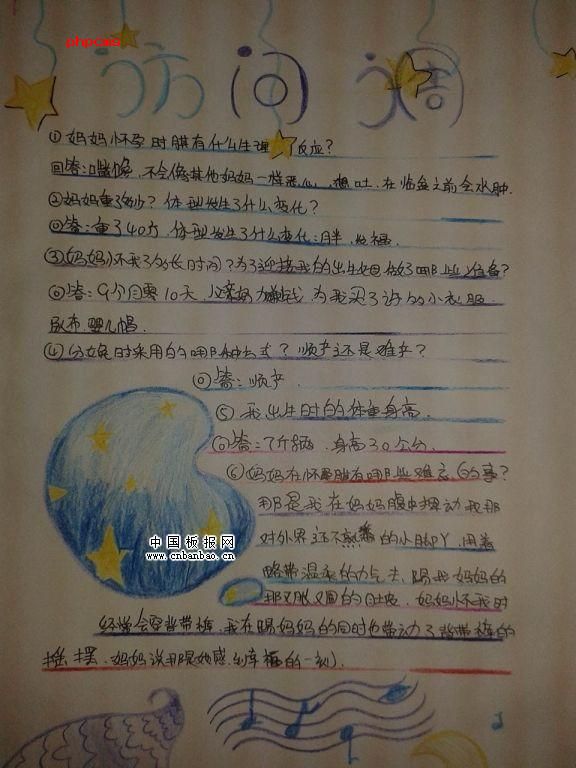 phpcms
访问调
①妈妈怀孕时期有什么生理反应？
回答：嘴馋，不会像其他妈妈一样恶心，想吐，在临盆之前会水肿.
②妈妈重了多少？体型发生了什么变化？
回答：重了40斤，体型发生了什么变化：胖，发福.
③妈妈怀我了多长时间？为了迎接我的出生妈做了哪些准备？
回答：9个月零10天，父亲努力赚钱，为我买了许多的小衣服
尿布，婴儿帽.
④分娩时采用的哪种方式？顺产还是难产？
回答：顺产.
⑤我出生时的体重身高.
回答：7斤 身高30公分.
⑥妈妈在怀孕期有哪些难忘的事？
那是我在妈妈腹中摆动我那
对外界还不熟悉的小脚丫，用着
略带温柔的力气去踢我妈妈的
那又胀又圆的肚皮，妈妈怀我时
经常会穿背带裤，我在踢妈妈的同时也带动了背带裤的
摇摆，妈妈说那是她感到幸福的一刻.
中国板报网
www.cnbanbao.cn